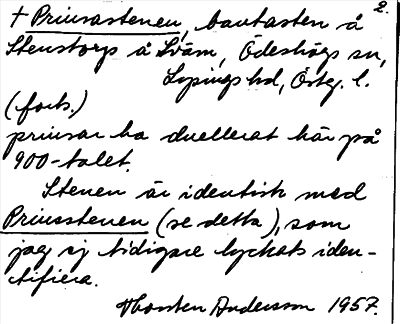 2.
+ Prinsastenen, bautasten å
Stenstorps å Sväm, Ödeshögs sn,
Lysings hd, Östg. l.
(forts.)
prinsar ha duellerat här på
900-talet.
Stenen är identisk med
Prinsstenen (se detta), som
jag ej tidigare lyckats iden-
tifiera.
Thorsten Andersson 1957.